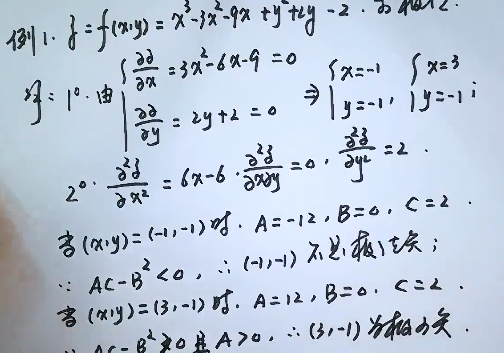 例1. z = f(x,y) = x³-3x²-9x+y²+2y-2. 求极值.
解: 1°. 由 { ∂z/∂x = 3x²-6x-9 = 0
∂z/∂y = 2y+2 = 0 ⇒ { x=-1 y=-1, { x=3 y=-1 ;
2°. ∂²z/∂x² = 6x-6. ∂²z/∂x∂y = 0. ∂²z/∂y² = 2.
当 (x,y) = (-1,-1) 时. A=-12, B=0, C=2.
∵ AC-B² < 0, ∴ (-1,-1) 不是极值点;
当 (x,y) = (3,-1) 时. A=12, B=0. C=2.
∵ AC-B² > 0 且 A>0, ∴ (3,-1) 为极小点.